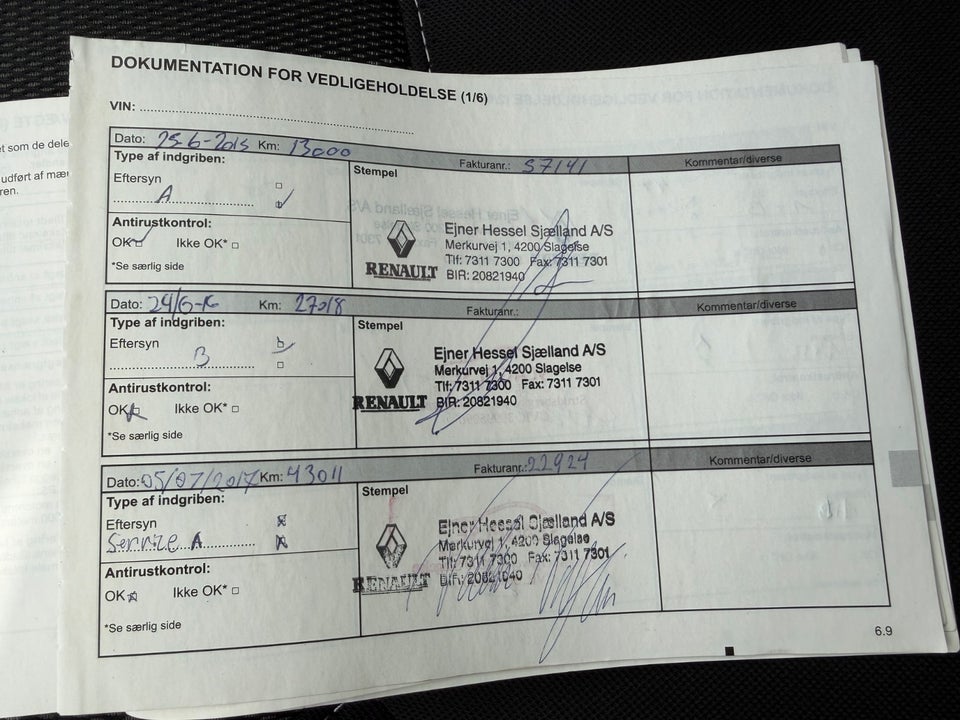 et som de dele
udført af mæ
ren.
DOKUMENTATION FOR VEDLIGEHOLDELSE (1/6)
VIN:
Dato: 25-6-2015 Km: 13000 Fakturanr.: 57141 Kommentar/diverse
Type af indgriben: Stempel
Eftersyn
A
Antirustkontrol:
OK Ikke OK*
*Se særlig side
RENAULT
Ejner Hessel Sjælland A/S
Merkurvej 1, 4200 Slagelse
Tlf: 7311 7300 Fax: 7311 7301
BIR: 20821940
Dato: 24/6-16 Km: 27018 Fakturanr.: Kommentar/diverse
Type af indgriben: Stempel
Eftersyn
B
Antirustkontrol:
OK Ikke OK*
*Se særlig side
RENAULT
Ejner Hessel Sjælland A/S
Merkurvej 1, 4200 Slagelse
Tlf: 7311 7300 Fax: 7311 7301
BIR: 20821940
Dato: 05/07/2017 Km: 43011 Fakturanr.: 22924 Kommentar/diverse
Type af indgriben: Stempel
Eftersyn
Service A
Antirustkontrol:
OK Ikke OK*
*Se særlig side
RENAULT
Ejner Hessel Sjælland A/S
Merkurvej 1, 4200 Slagelse
Tlf: 7311 7300 Fax: 7311 7301
BIR: 20821940
6.9